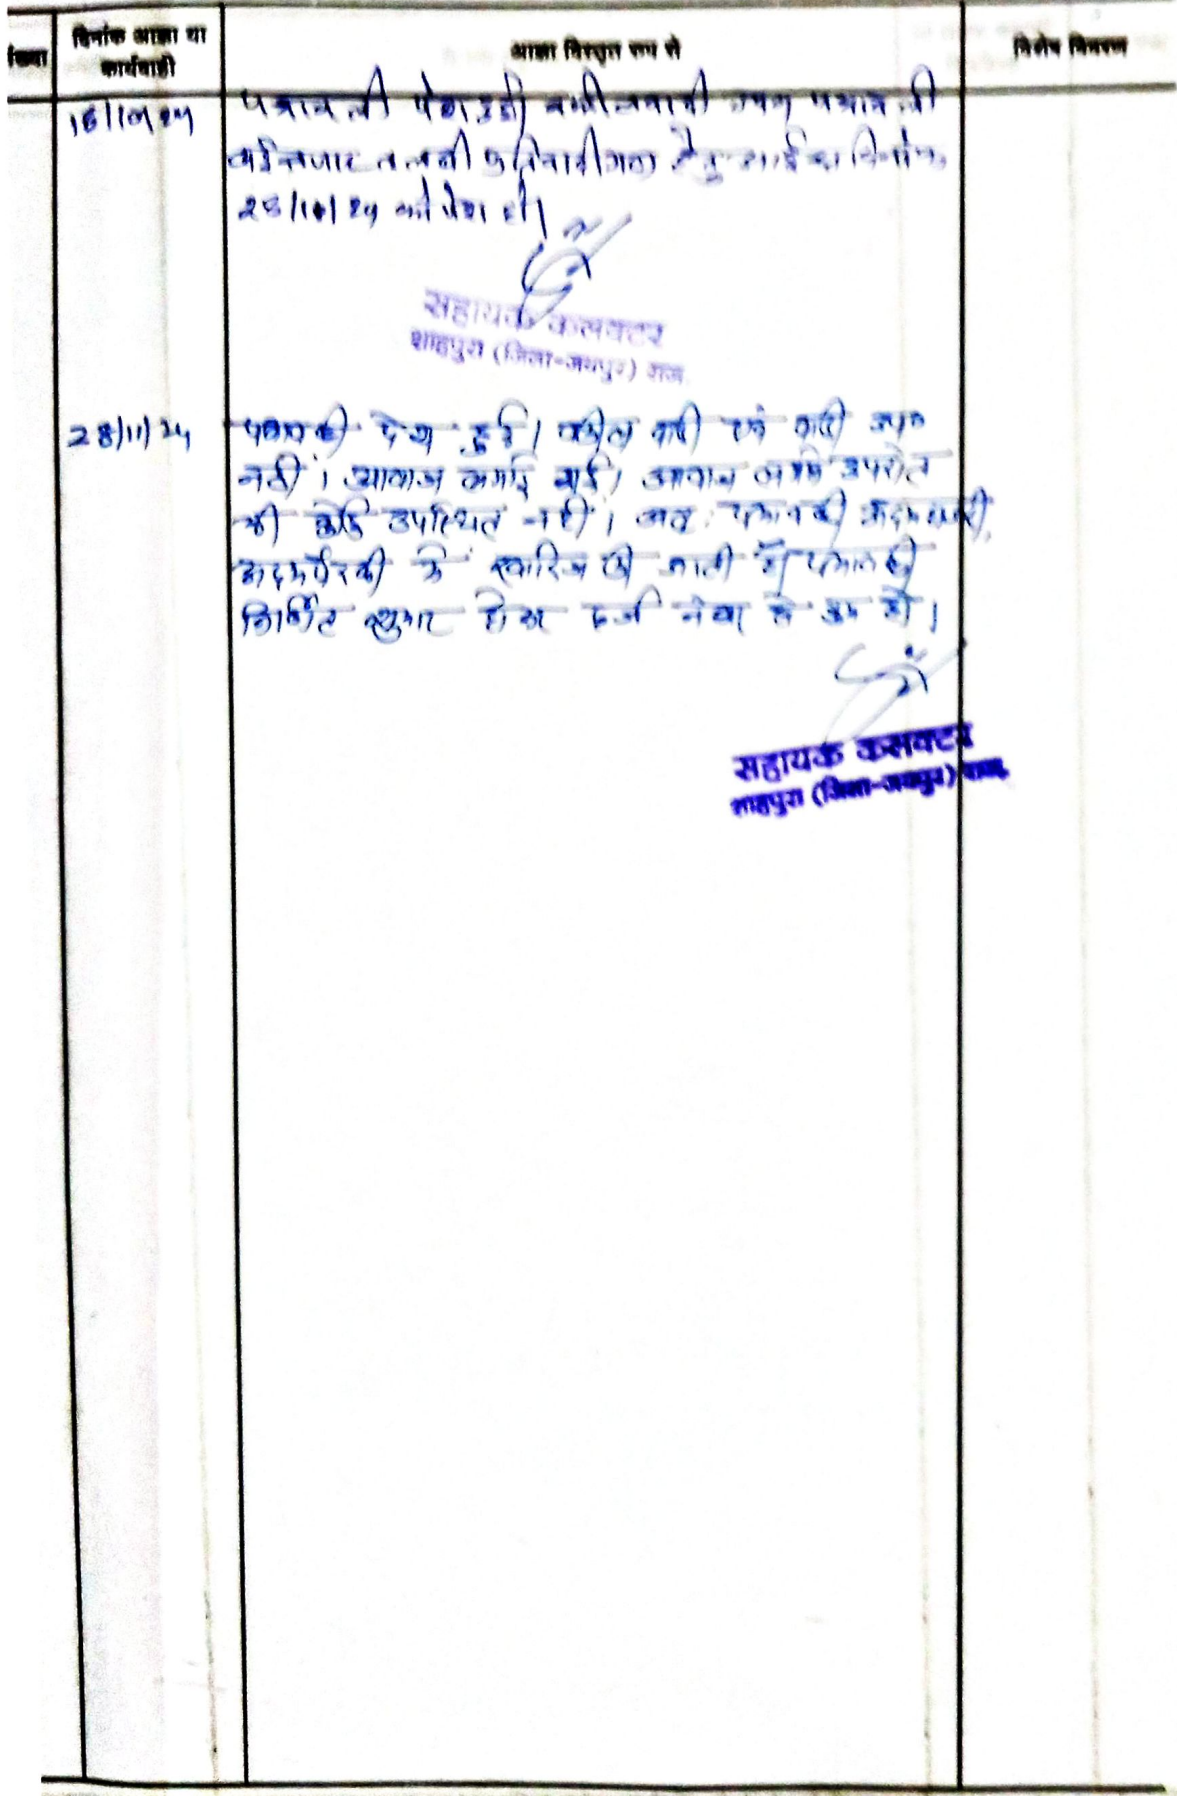 दिनांक आज्ञा या
कार्यवाही
आज्ञा विस्तृत रूप से
विशेष विवरण
पत्रावली पेश हुई वकील वादी उप० पत्रावली
तलबी प्रतिवादीगण हेतु दिनांक
को पेश हो।
सहायक कलक्टर
शाहपुरा (जिला-जयपुर) राज.
28/11/24
पत्रावली पेश हुई। वकील वादी एवं वादी उप०
नहीं। आवाज लगाई गई। आवाज उपरांत
भी कोई उपस्थित नहीं। अतः पत्रावली
अदमपैरवी में खारिज की जाती है। पत्रावली
निर्णित शुमार होकर दर्ज नंबर से कम हो।
सहायक कलक्टर
शाहपुरा (जिला-जयपुर) राज.